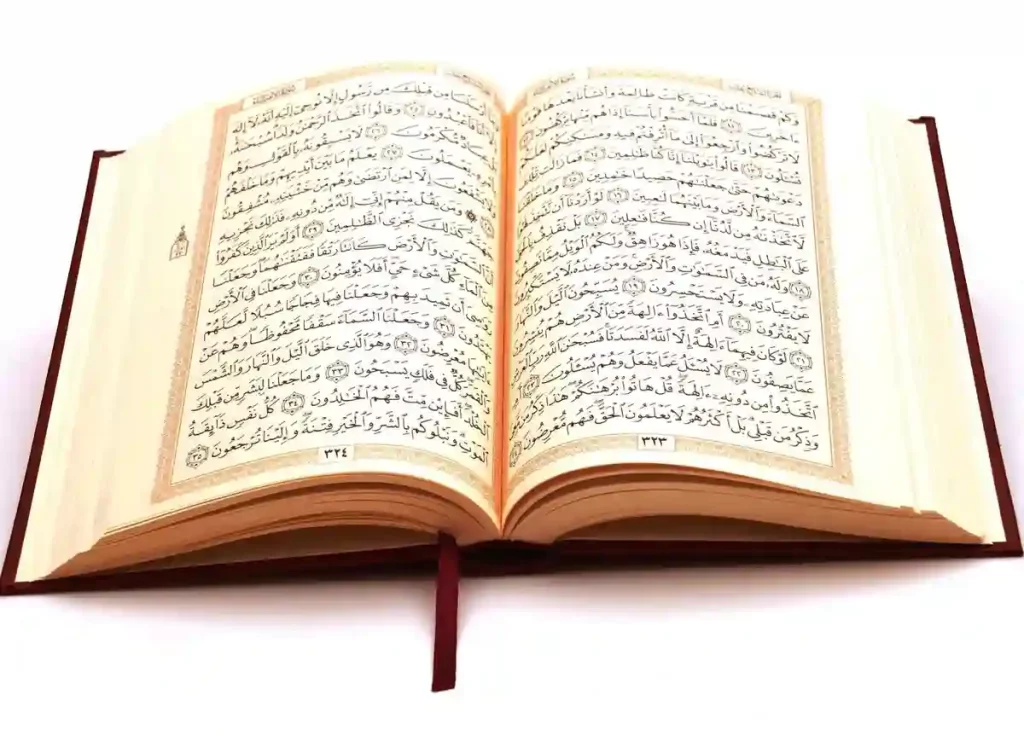 وَكَمْ قَصَمْنَا مِن قَرْيَةٍ كَانَتْ ظَالِمَةً وَأَنشَأْنَا بَعْدَهَا قَوْمًا
ءَاخَرِينَ ١١ فَلَمَّآ أَحَسُّوا۟ بَأْسَنَآ إِذَا هُم مِّنْهَا يَرْكُضُونَ ١٢
لَا تَرْكُضُوا۟ وَٱرْجِعُوٓا۟ إِلَىٰ مَآ أُتْرِفْتُمْ فِيهِ وَمَسَٰكِنِكُمْ لَعَلَّكُمْ
تُسْـَٔلُونَ ١٣ قَالُوا۟ يَٰوَيْلَنَآ إِنَّا كُنَّا ظَٰلِمِينَ ١٤ فَمَا زَالَت تِّلْكَ
دَعْوَىٰهُمْ حَتَّىٰ جَعَلْنَٰهُمْ حَصِيدًا خَٰمِدِينَ ١٥ وَمَا خَلَقْنَا
ٱلسَّمَآءَ وَٱلْأَرْضَ وَمَا بَيْنَهُمَا لَٰعِبِينَ ١٦ لَوْ أَرَدْنَآ أَن نَّتَّخِذَ لَهْوًا
لَّٱتَّخَذْنَٰهُ مِن لَّدُنَّآ إِن كُنَّا فَٰعِلِينَ ١٧ بَلْ نَقْذِفُ بِٱلْحَقِّ
عَلَى ٱلْبَٰطِلِ فَيَدْمَغُهُۥ فَإِذَا هُوَ زَاهِقٌ وَلَكُمُ ٱلْوَيْلُ مِمَّا تَصِفُونَ
١٨ وَلَهُۥ مَن فِى ٱلسَّمَٰوَٰتِ وَٱلْأَرْضِ وَمَنْ عِندَهُۥ لَا يَسْتَكْبِرُونَ
عَنْ عِبَادَتِهِۦ وَلَا يَسْتَحْسِرُونَ ١٩ يُسَبِّحُونَ ٱلَّيْلَ وَٱلنَّهَارَ
لَا يَفْتُرُونَ ٢٠ أَمِ ٱتَّخَذُوٓا۟ ءَالِهَةً مِّنَ ٱلْأَرْضِ هُمْ يُنشِرُونَ
٢١ لَوْ كَانَ فِيهِمَآ ءَالِهَةٌ إِلَّا ٱللَّهُ لَفَسَدَتَا فَسُبْحَٰنَ ٱللَّهِ رَبِّ ٱلْعَرْشِ
عَمَّا يَصِفُونَ ٢٢ لَا يُسْـَٔلُ عَمَّا يَفْعَلُ وَهُمْ يُسْـَٔلُونَ ٢٣ أَمِ
ٱتَّخَذُوا۟ مِن دُونِهِۦٓ ءَالِهَةً قُلْ هَاتُوا۟ بُرْهَٰنَكُمْ هَٰذَا ذِكْرُ مَن مَّعِىَ
وَذِكْرُ مَن قَبْلِى بَلْ أَكْثَرُهُمْ لَا يَعْلَمُونَ ٱلْحَقَّ فَهُم مُّعْرِضُونَ ٢٤
٣٢٣
أَرْسَلْنَا مِن قَبْلِكَ مِن رَّسُولٍ إِلَّا نُوحِىٓ إِلَيْهِ أَنَّهُۥ لَآ إِلَٰهَ
إِلَّآ أَنَا۠ فَٱعْبُدُونِ ٢٥ وَقَالُوا۟ ٱتَّخَذَ ٱلرَّحْمَٰنُ وَلَدًا سُبْحَٰنَهُۥ
بَلْ عِبَادٌ مُّكْرَمُونَ ٢٦ لَا يَسْبِقُونَهُۥ بِٱلْقَوْلِ وَهُم
بِأَمْرِهِۦ يَعْمَلُونَ ٢٧ يَعْلَمُ مَا بَيْنَ أَيْدِيهِمْ وَمَا خَلْفَهُمْ
وَلَا يَشْفَعُونَ إِلَّا لِمَنِ ٱرْتَضَىٰ وَهُم مِّنْ خَشْيَتِهِۦ مُشْفِقُونَ
٢٨ ۞ وَمَن يَقُلْ مِنْهُمْ إِنِّىٓ إِلَٰهٌ مِّن دُونِهِۦ فَذَٰلِكَ نَجْزِيهِ
جَهَنَّمَ كَذَٰلِكَ نَجْزِى ٱلظَّٰلِمِينَ ٢٩ أَوَلَمْ يَرَ ٱلَّذِينَ كَفَرُوٓا۟
أَنَّ ٱلسَّمَٰوَٰتِ وَٱلْأَرْضَ كَانَتَا رَتْقًا فَفَتَقْنَٰهُمَا وَجَعَلْنَا
مِنَ ٱلْمَآءِ كُلَّ شَىْءٍ حَىٍّ أَفَلَا يُؤْمِنُونَ ٣٠ وَجَعَلْنَا فِى ٱلْأَرْضِ
رَوَٰسِىَ أَن تَمِيدَ بِهِمْ وَجَعَلْنَا فِيهَا فِجَاجًا سُبُلًا لَّعَلَّهُمْ
يَهْتَدُونَ ٣١ وَجَعَلْنَا ٱلسَّمَآءَ سَقْفًا مَّحْفُوظًا وَهُمْ عَنْ
ءَايَٰتِهَا مُعْرِضُونَ ٣٢ وَهُوَ ٱلَّذِى خَلَقَ ٱلَّيْلَ وَٱلنَّهَارَ وَٱلشَّمْسَ
وَٱلْقَمَرَ كُلٌّ فِى فَلَكٍ يَسْبَحُونَ ٣٣ وَمَا جَعَلْنَا لِبَشَرٍ مِّن قَبْلِكَ
ٱلْخُلْدَ أَفَإِي۟ن مِّتَّ فَهُمُ ٱلْخَٰلِدُونَ ٣٤ كُلُّ نَفْسٍ ذَآئِقَةُ
ٱلْمَوْتِ وَنَبْلُوكُم بِٱلشَّرِّ وَٱلْخَيْرِ فِتْنَةً وَإِلَيْنَا تُرْجَعُونَ ٣٥
٣٢٤